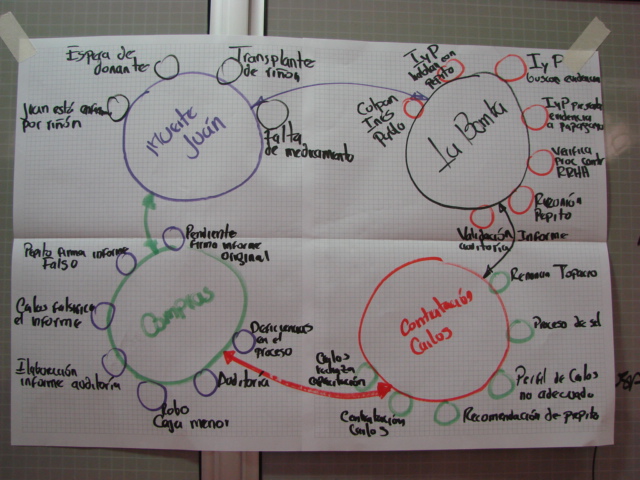 Espera de
donante
Transplante
de riñon
Juan está enfermo
por riñón
Muerte
Juán
Falta
de medicamento
IyP
hablan con
Pepito
IyP
buscan evidencia
Culpan
Inés
Pepito
La Bomba
IyP presenta
evidencia
a
Verifica
Proc contr
RRHH
Reunión
Pepito
Validación Informe
auditoría
Pendiente
firma informe
original
Pepito firma informe
Falso
Carlos falsifica
el informe
Compras
Deficiencias
en el
proceso
Elaboración
informe auditoria
Auditoría
Robo
Caja menor
Contratación
Carlos
Topacio
Proceso de sel
Perfil de Carlos
no adecuado
Carlos
rechaza
capacitación
Contratación
Carlos
Recomendación de pepito